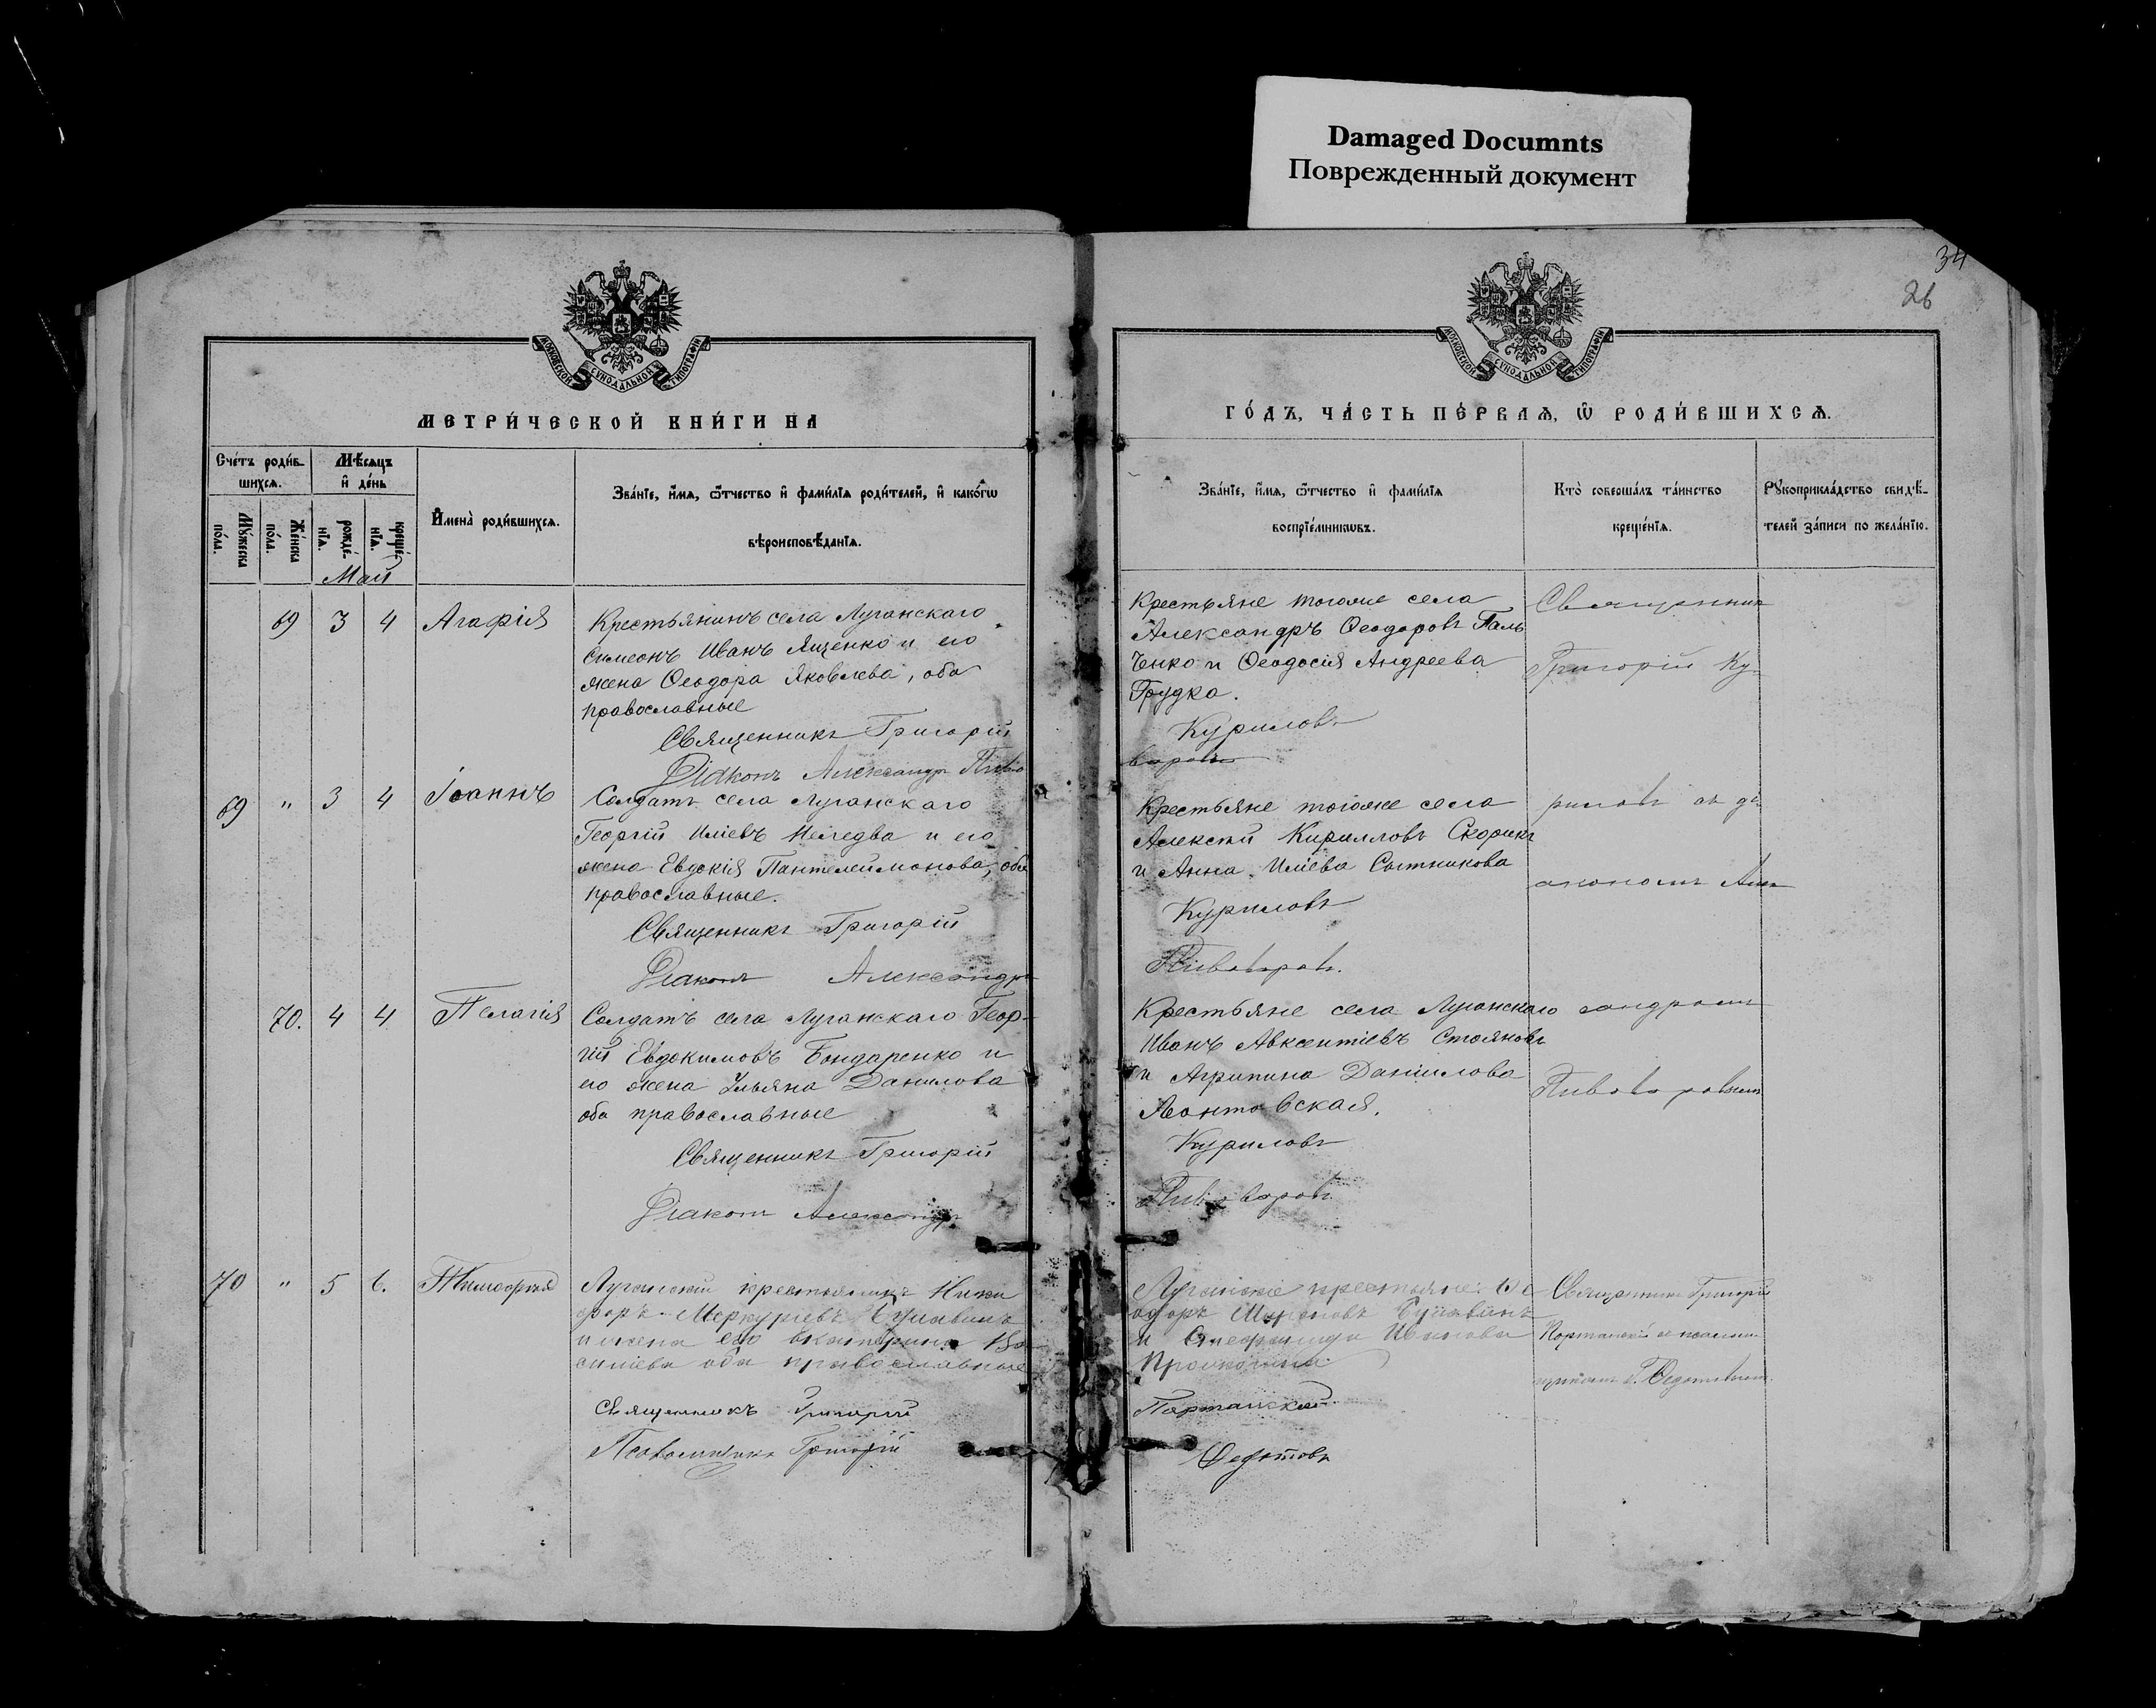 Damaged Documnts
Поврежденный документ
34
26
МОСКОВСКОЙ СѴНОДАЛЬНОЙ ТИПОГРАФІИ
МЕТРИ́ЧЕСКОЙ КНИ́ГИ НА
Сче́тъ роди́в-
шихсѧ.
Мѣ́сѧцъ
и҆ де́нь
Мꙋ́жеска
по́ла.
Же́нска
по́ла.
рожде́-
нїѧ.
креще́-
нїѧ.
И҆мена̀ роди́вшихсѧ.
Зва́нїе, и҆́мѧ, ѻ҆́тчество и҆ фами́лїѧ роди́телей, и҆ како́гѡ
вѣроисповѣ́данїѧ.
Май
69 3 4 Агафія
Крестьянинъ села Луганскаго
Симеонъ Иванъ Ященко и его
жена Ѳеодора Яковлева, оба
православные
Священникъ Григорій
Діаконъ Александръ Пиво
69 " 3 4 Іоаннъ
Солдатъ села Луганскаго
Георгій Иліевъ и его
жена Евдокія Пантелеимонова, оба
православные.
Священникъ Григорій
Діаконъ Александръ
70. 4 4 Пелагія
Солдатъ села Луганскаго Геор-
гій Евдокимовъ Бондаренко и
его жена Ульяна Данилова
оба православные
Священникъ Григорій
Діаконъ Александръ
70 " 5 6.
Луганскій крестьянинъ Ники
форъ Меркуріевъ
и жена его Екатерина Ва
силіева оба православные
Священникъ Григорій
Псаломщикъ Григорій
МОСКОВСКОЙ СѴНОДАЛЬНОЙ ТИПОГРАФІИ
ГО́ДЪ, ЧА́СТЬ ПЕ́РВАѦ, Ѡ҆ РОДИ́ВШИХСѦ.
Зва́нїе, и҆́мѧ, ѻ҆́тчество и҆ фами́лїѧ
воспрїе́мникѡвъ.
Кто̀ соверша́лъ та́инство
креще́нїѧ.
Рꙋкоприкла́дство свидѣ́-
телей за́писи по жела́нїю.
Крестьяне тогоже села
Александръ Ѳеодоровъ Паль
ченко и Ѳеодосія Андреева
Грудка.
Куриловъ
варовъ
Крестьяне тогоже села
Алексій Кирилловъ Скорикъ
и Анна Иліева Сытникова
Куриловъ
Пивоваровъ.
Крестьяне села Луганскаго
Иванъ Авксентіевъ Стояновъ
и Агрипина Даніилова
Леонтовская.
Куриловъ
Пивоваровъ.
Луганскіе крестьяне: Ѳе
одоръ
и Ивановна
Портанскій
Ѳедотовъ
Священник
Григорій Ку-
риловъ съ ді
акономъ Алек
сандромъ
Пивоваровымъ
Священникъ Григорій
Портанскій съ псалом
щикомъ Г. Ѳедотовымъ